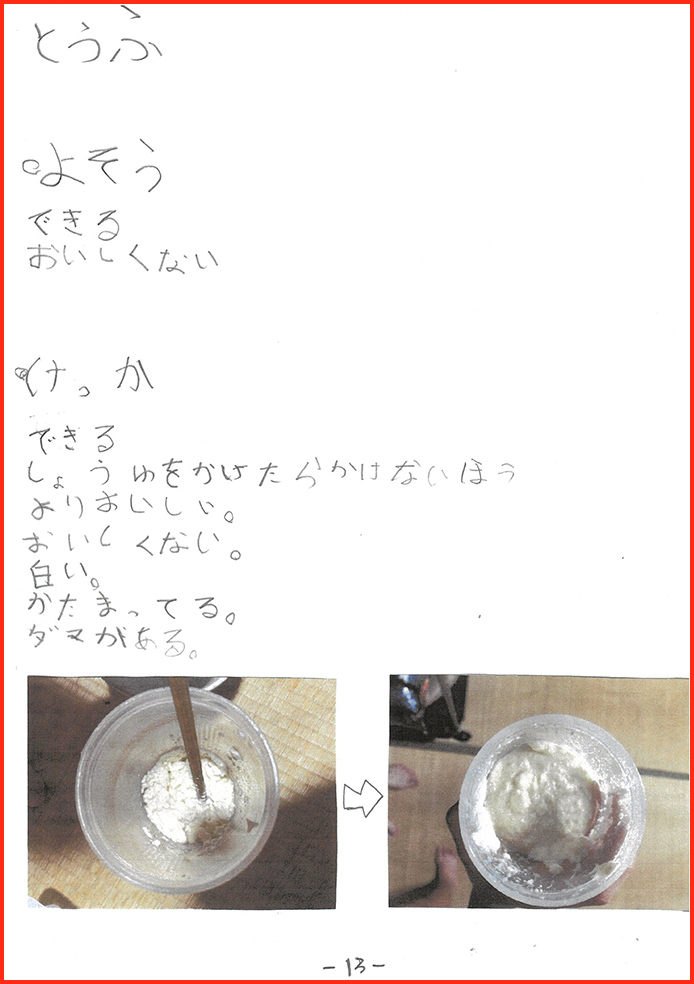 とうふ
◎よそう
できる
おいしくない
◎けっか
できる
しょうゆをかけたらかけないほう
よりおいしい。
おいしくない。
白い。
かたまってる。
ダマがある。
-13-